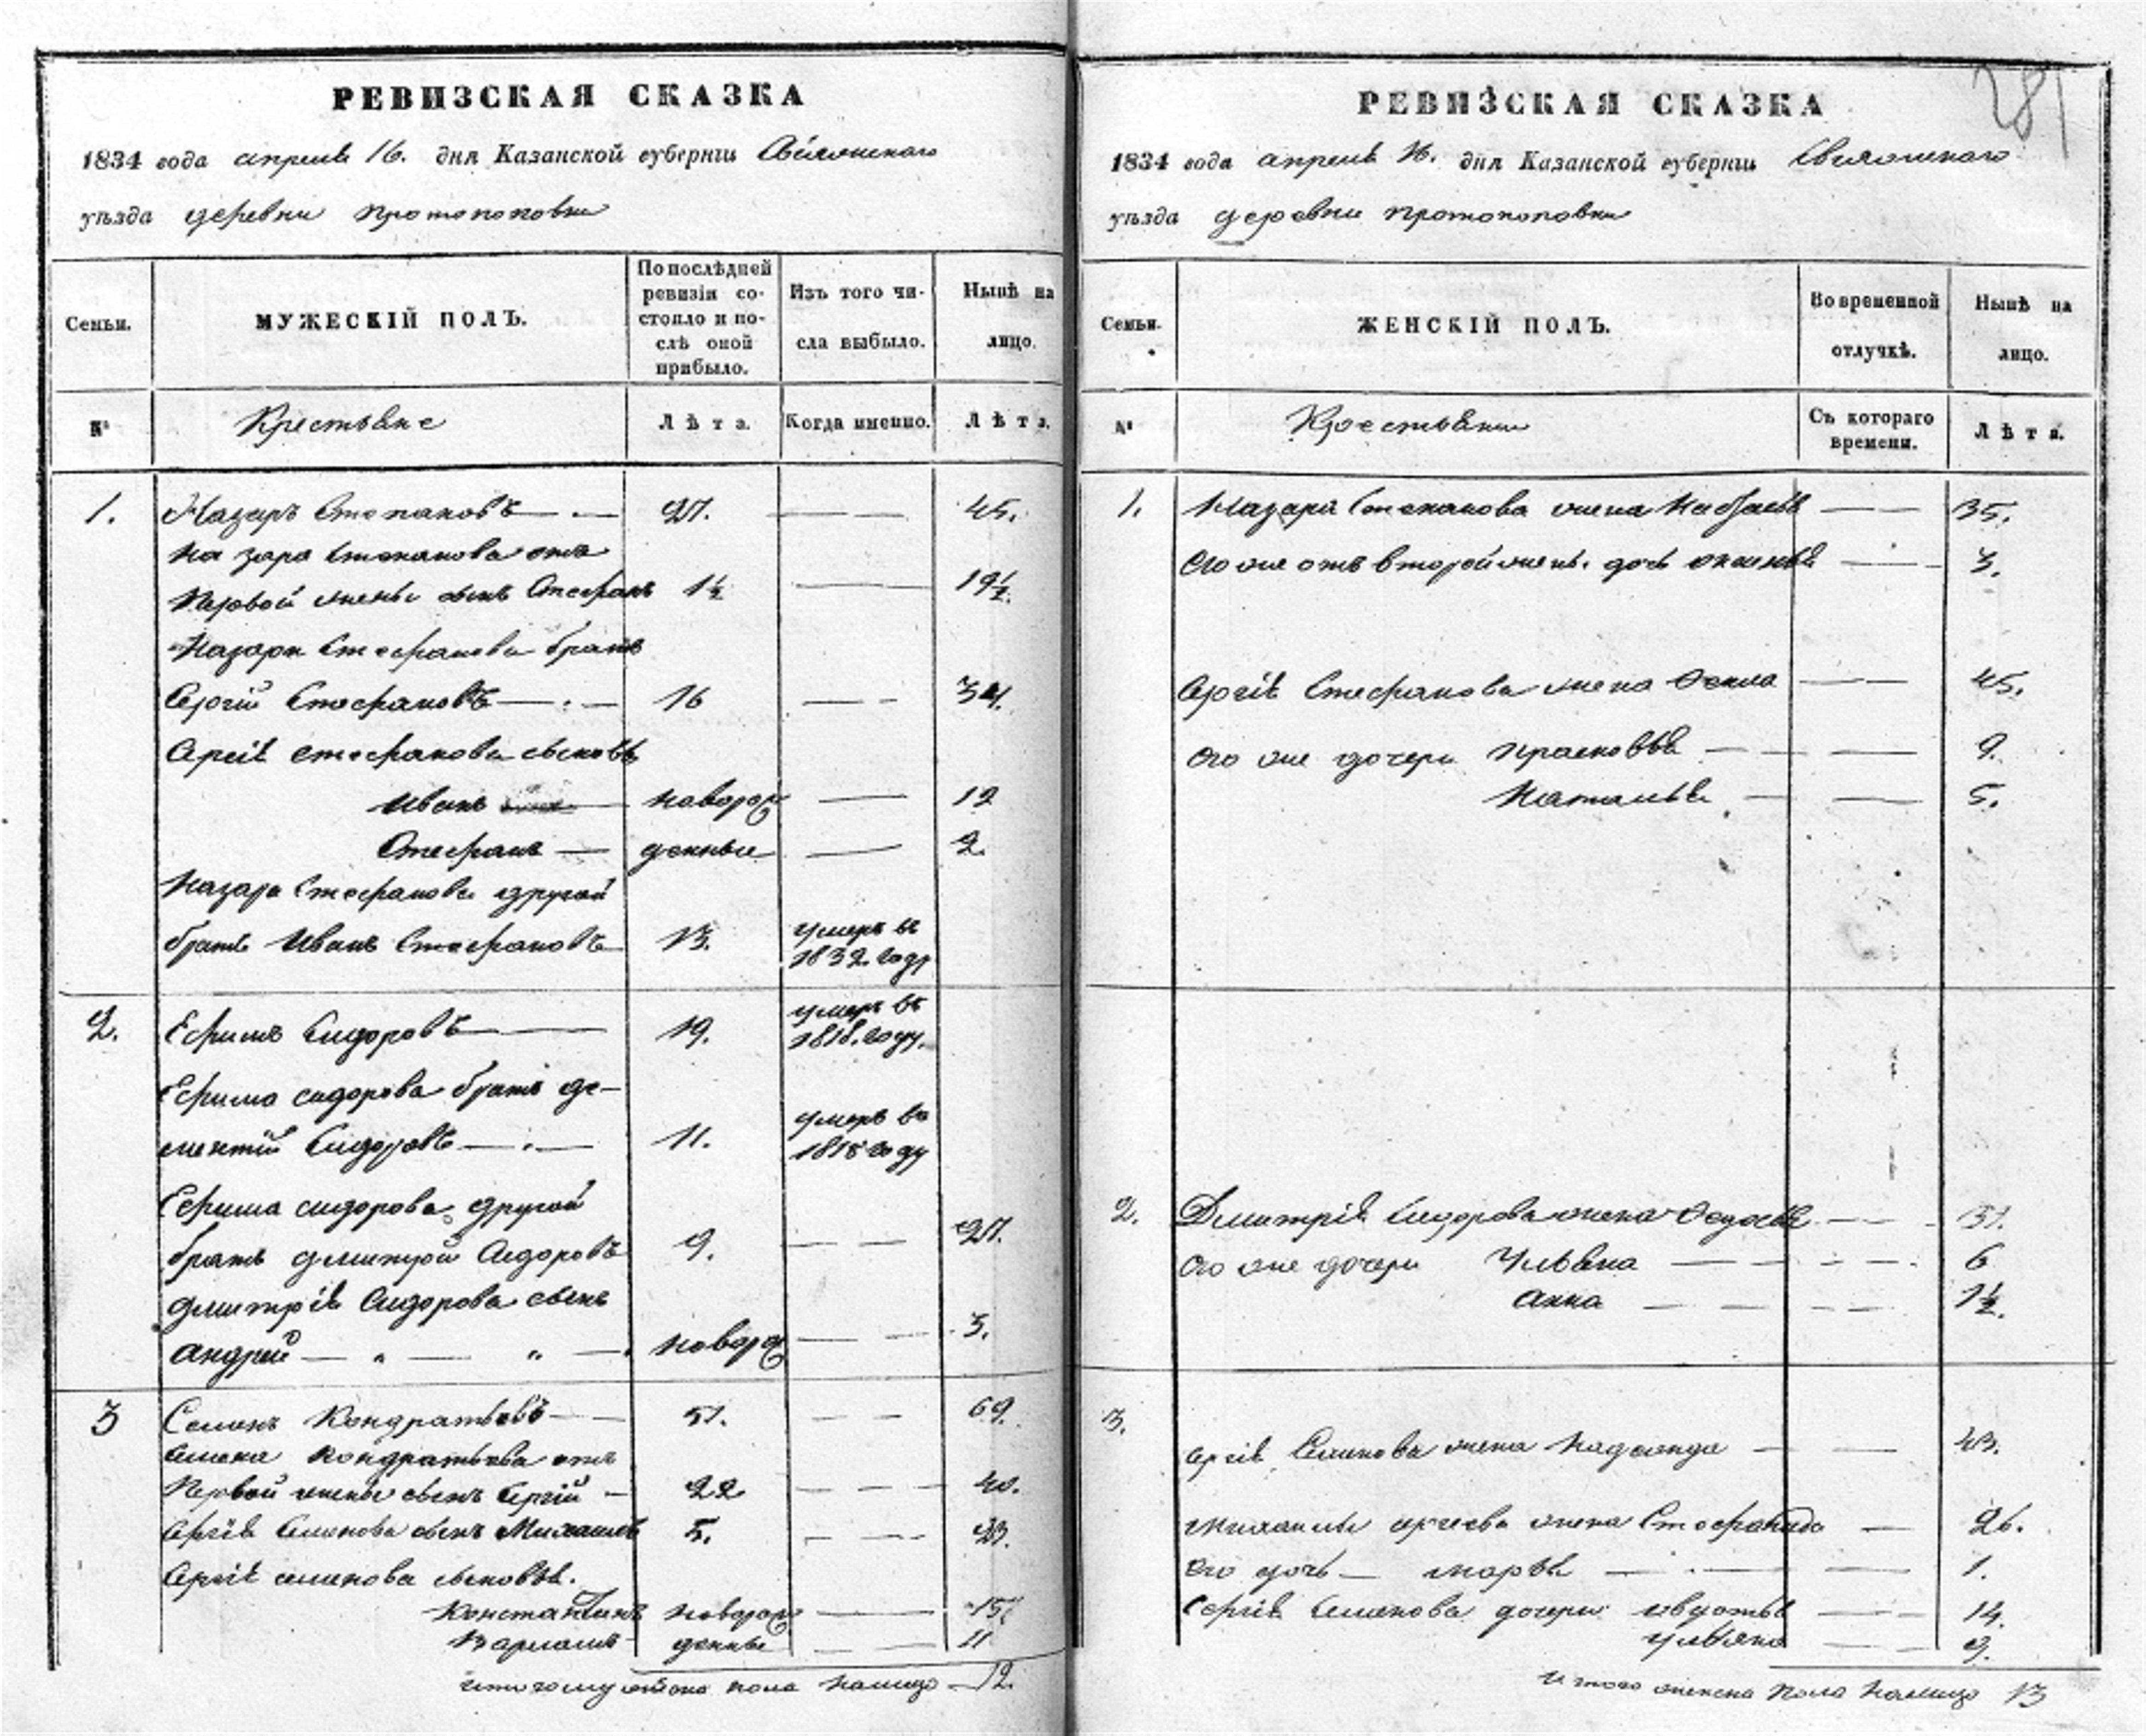 РЕВИЗСКАЯ СКАЗКА
1834 года апреля 16. дня Казанской губернiи Свiяжскаго
уѣзда деревни Протопоповки
Семьи.
МУЖЕСКIЙ ПОЛЪ.
По послѣдней
ревизiи со-
стояло и по-
слѣ оной
прибыло.
Изъ того чи-
сла выбыло.
Нынѣ на
лицо.
№
Крестьяне
Лѣта.
Когда именно.
Лѣта.
1. Назаръ Степановъ 27. 45.
Назара Степанова отъ
первой жены сынъ Стефанъ 1½ 19½.
Назара Стефанова братъ
Сергiй Стефановъ 16 34.
Сергiя Стефанова сыновья
Иванъ новорож 12
Стефанъ денные 2.
Назара Стефанова другой
братъ Иванъ Стефановъ 13. умеръ въ
1832. году
2. Ефимъ Сидоровъ 19. умеръ въ
1818. году.
Ефима Сидорова братъ де-
ментiй Сидоровъ 11. умеръ въ
1818 году
Ефима Сидорова другой
братъ Дмитрiй Сидоровъ 9. 27.
Дмитрiя Сидорова сынъ
Андрей новорож 3.
3 Семенъ Кондратьевъ 51. 69.
Семена Кондратьева отъ
первой жены сынъ Сергiй 22 40.
Сергiя Семенова сынъ Михаилъ 5. 23.
Сергiя Семенова сыновья.
Константинъ новорож 15
Варламъ денные 11
Итого мужеска пола налицо 12.
281
РЕВИЗСКАЯ СКАЗКА
1834 года апреля 16. дня Казанской губернiи Свiяжскаго
уѣзда деревни Протопоповки
Семьи.
ЖЕНСКIЙ ПОЛЪ.
Во временной
отлучкѣ.
Нынѣ на
лицо.
№
Крестьянки
Съ котораго
времени.
Лѣта.
1. Назара Степанова жена 35.
Его же отъ второй жены дочь 3.
Сергiя Стефанова жена Фекла 45.
Его же дочери Прасковья 9.
Наталья 5.
2. Дмитрiя Сидорова жена Федосья 31.
Его же дочери Ульяна 6
Анна 1½.
3.
Сергiя Семенова жена Надежда 43.
Михаилы Сергеева жена Стефанида 26.
Его дочь Марья 1.
Сергiя Семенова дочери Авдотья 14.
Ульяна 9.
Итого женска пола налицо 13